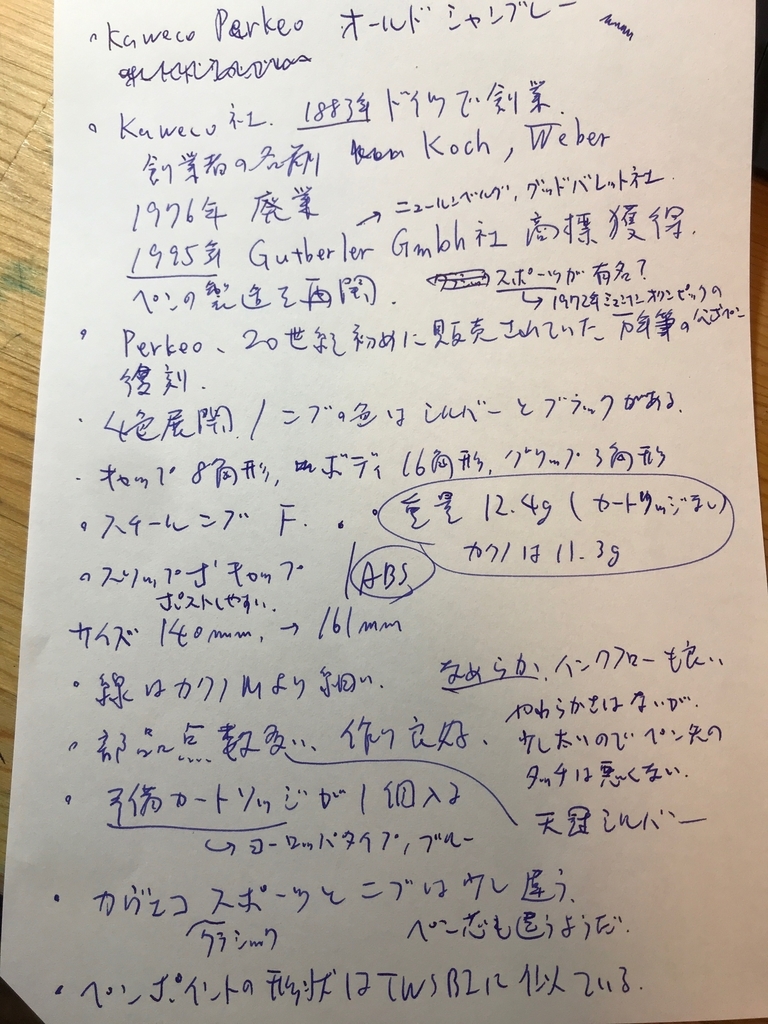 ・Kaweco Perkeo オールドシャンブレー
・Kaweco社. 1883年ドイツで創業.
創業者の名前 Koch, Weber
1976年 廃業
→ ニュールンベルグ, グッドバレット社.
1995年 Gutberler Gmbh社 商標獲得.
ペンの製造を再開. スポーツが有名?
↳ 1972年ミュンヘンオリンピックの
・Perkeo、20世紀初めに販売されていた、万年筆の
復刻.
・4色展開 / ニブの色はシルバーとブラックがある.
・キャップ 8角形, ボディ 16角形, グリップ 3角形
・スチールニブ F.
・重量 12.4g (カートリッジなし)
カクノは 11.3g
・スリップオンキャップ / ABS
ポストしやすい.
サイズ 140mm, → 161mm
・線はカクノMより細い.
なめらか. インクフローも良い
やわらかさはないが、
少し太いのでペン先の
タッチは悪くない.
・部品点数多い、作り良好.
天冠シルバー
・予備カートリッジが1個入る
↳ ヨーロッパタイプ, ブルー
・カヴェコ スポーツとニブは少し違う.
クラシック
ペン芯も違うようだ.
・ペンポイントの形状はTWSBIに似ている.